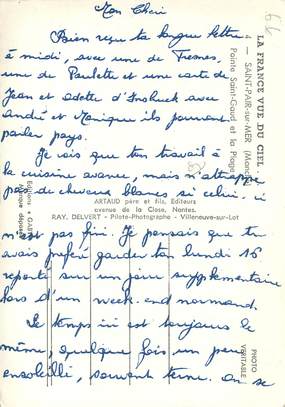 Mon Chéri
Bien reçu ta longue lettre
à midi, avec une de Fresnes,
une de Paulette et une carte de
Jean et Odette d'Insbuck avec
André et Monique ils pourront
parler pays.
Je vois que ton travail à
la cuisine avance, mais n'attrappe
pas de cheveux blancs si celui-ci
n'est pas fini. Je pensais que tu
avais préféré garder ton lundi 16
reporté sur un jour supplémentaire
lors d'un week-end normand.
Le temps ici est toujours le
même, quelque fois un peu
ensoleillé, souvent terne. On se
LA FRANCE VUE DU CIEL
4 — SAINT-PAIR-sur-MER (Manche)
Pointe Saint-Gaud et la Plage
ARTAUD père et fils, Editeurs
avenue de la Close, Nantes.
RAY. DELVERT - Pilote-Photographe - Villeneuve-sur-Lot
Editions "GABY"
Marque déposée
PHOTO
VÉRITABLE